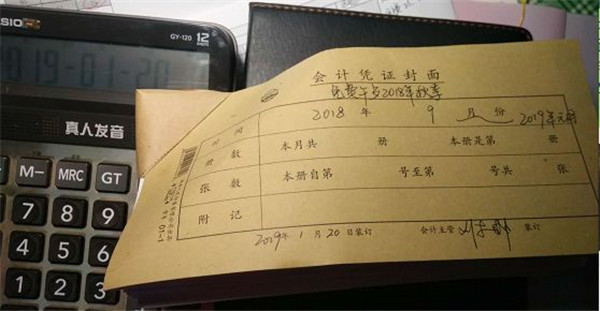 SIO
GY-120
12
2019-01-20
真人发音
M-
MRC
GT
7
8
9
4
5
6
1
2
3
会计凭证封面
免费午餐2018年秋季
时间
2018年 9月份 2019年元月
册数
本月共 册 本册是第 册
张数
本册自第 号至第 号共 张
附记
2019年1月20日装订 会计主管 装订
01-1